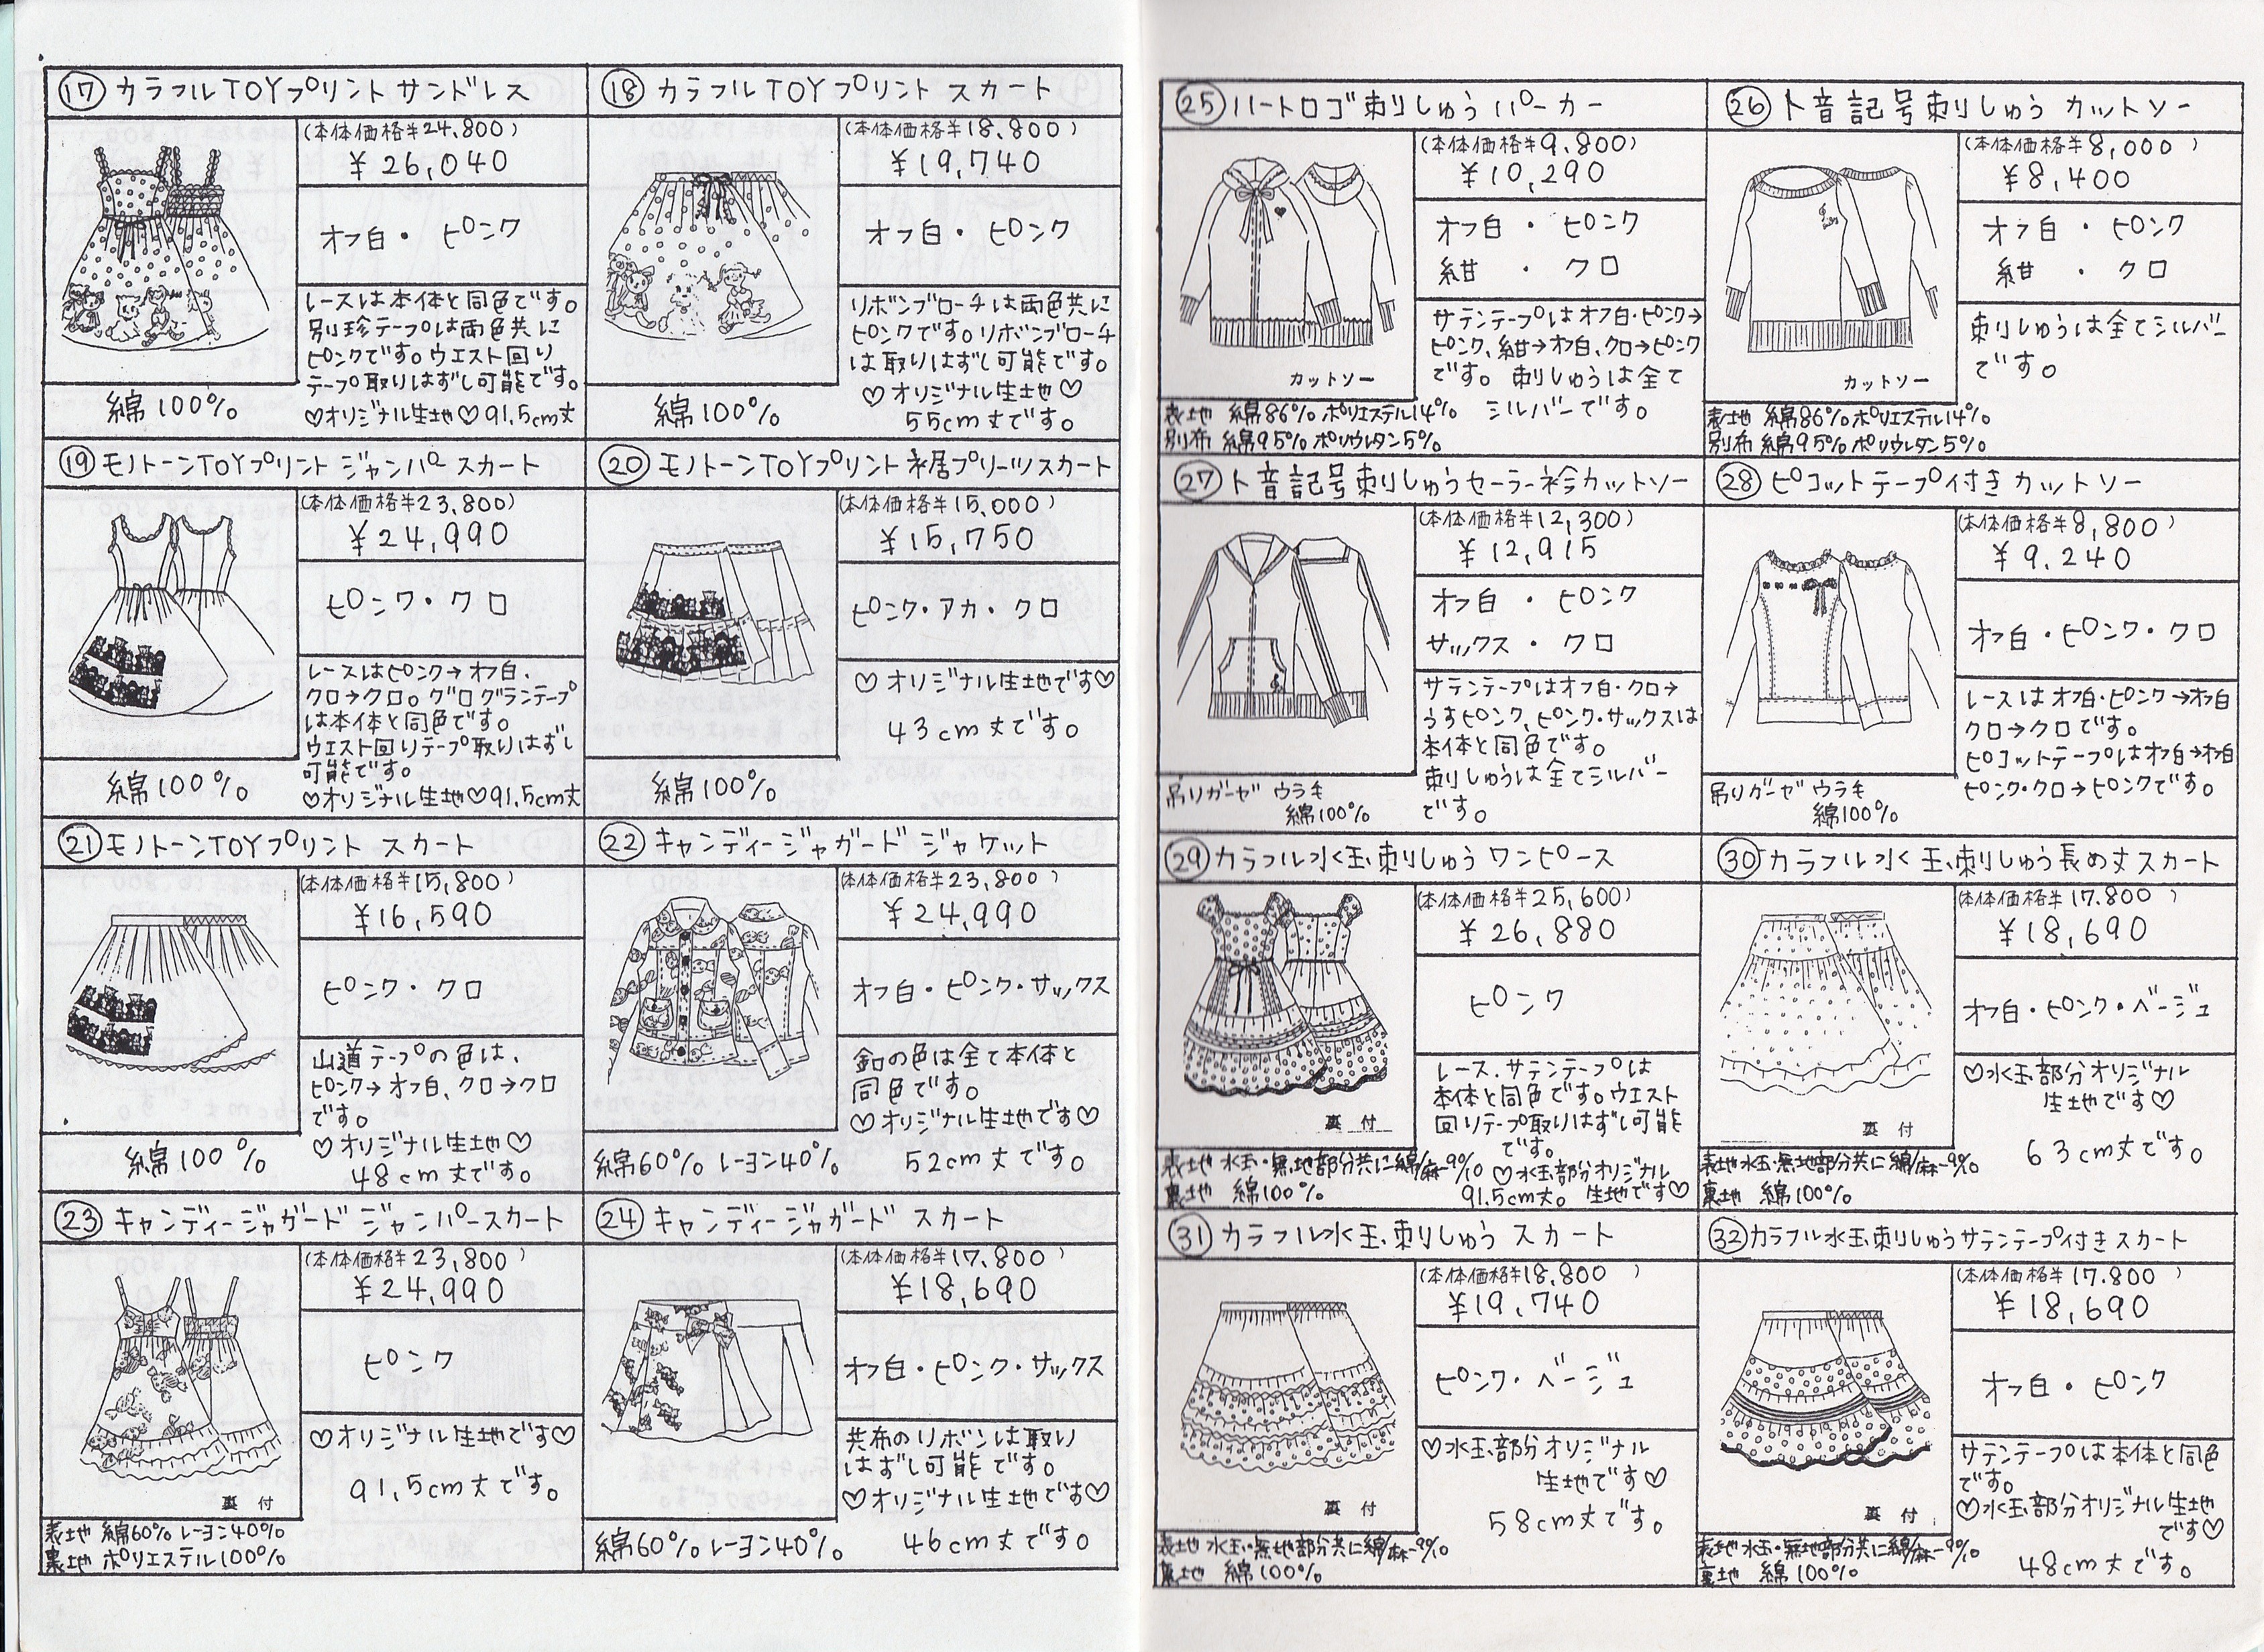 ⑰ カラフルTOYプリント サンドレス
(本体価格¥24,800)
¥26,040
オフ白・ピンク
レースは本体と同色です。
別珍テープは両色共に
ピンクです。ウエスト回り
テープ取りはずし可能です。
♡オリジナル生地♡91.5cm丈
綿100%
⑱ カラフルTOYプリント スカート
(本体価格¥18,800)
¥19,740
オフ白・ピンク
リボンブローチは両色共に
ピンクです。リボンブローチ
は取りはずし可能です。
♡オリジナル生地♡
55cm丈です。
綿100%
⑲ モノトーンTOYプリント ジャンパースカート
(本体価格¥23,800)
¥24,990
ピンク・クロ
レースはピンク→オフ白、
クロ→クロ。グログランテープ
は本体と同色です。
ウエスト回りテープ取りはずし
可能です。
♡オリジナル生地♡91.5cm丈
綿100%
⑳ モノトーンTOYプリント裾プリーツスカート
(本体価格¥15,000)
¥15,750
ピンク・アカ・クロ
♡オリジナル生地です♡
43cm丈です。
綿100%
㉑ モノトーンTOYプリント スカート
(本体価格¥15,800)
¥16,590
ピンク・クロ
山道テープの色は、
ピンク→オフ白、クロ→クロ
です。
♡オリジナル生地♡
48cm丈です。
綿100%
㉒ キャンディージャガード ジャケット
(本体価格¥23,800)
¥24,990
オフ白・ピンク・サックス
釦の色は全て本体と
同色です。
♡オリジナル生地です♡
52cm丈です。
綿60% レーヨン40%
㉓ キャンディージャガード ジャンパースカート
(本体価格¥23,800)
¥24,990
ピンク
♡オリジナル生地です♡
91.5cm丈です。
裏付
表地 綿60% レーヨン40%
裏地 ポリエステル100%
㉔ キャンディージャガード スカート
(本体価格¥17,800)
¥18,690
オフ白・ピンク・サックス
共布のリボンは取り
はずし可能です。
♡オリジナル生地です♡
46cm丈です。
綿60% レーヨン40%
㉕ ハートロゴ刺しゅう パーカー
(本体価格¥9,800)
¥10,290
オフ白・ピンク
紺・クロ
サテンテープはオフ白・ピンク→
ピンク、紺→オフ白、クロ→ピンク
です。刺しゅうは全て
シルバーです。
カットソー
表地 綿86% ポリエステル14%
別布 綿95% ポリウレタン5%
㉖ ト音記号刺しゅう カットソー
(本体価格¥8,000)
¥8,400
オフ白・ピンク
紺・クロ
刺しゅうは全てシルバー
です。
カットソー
表地 綿86% ポリエステル14%
別布 綿95% ポリウレタン5%
㉗ ト音記号刺しゅうセーラー衿カットソー
(本体価格¥12,300)
¥12,915
オフ白・ピンク
サックス・クロ
サテンテープはオフ白・クロ→
うすピンク、ピンク・サックスは
本体と同色です。
刺しゅうは全てシルバー
です。
吊りガーゼ ウラ毛
綿100%
㉘ ピコットテープ付き カットソー
(本体価格¥8,800)
¥9,240
オフ白・ピンク・クロ
レースはオフ白・ピンク→オフ白
クロ→クロです。
ピコットテープはオフ白→オフ白
ピンク・クロ→ピンクです。
吊りガーゼ ウラ毛
綿100%
㉙ カラフル水玉刺しゅう ワンピース
(本体価格¥25,600)
¥26,880
ピンク
レース、サテンテープは
本体と同色です。ウエスト
回りテープ取りはずし可能
です。
♡水玉部分オリジナル
生地です♡
91.5cm丈。
裏付
表地 水玉・無地部分共に綿/麻-90/10
裏地 綿100%
㉚ カラフル水玉刺しゅう長め丈スカート
(本体価格¥17,800)
¥18,690
オフ白・ピンク・ベージュ
♡水玉部分オリジナル
生地です♡
63cm丈です。
裏付
表地 水玉・無地部分共に綿/麻-90/10
裏地 綿100%
㉛ カラフル水玉刺しゅう スカート
(本体価格¥18,800)
¥19,740
ピンク・ベージュ
♡水玉部分オリジナル
生地です♡
58cm丈です。
裏付
表地 水玉・無地部分共に綿/麻-90/10
裏地 綿100%
㉜ カラフル水玉刺しゅうサテンテープ付きスカート
(本体価格¥17,800)
¥18,690
オフ白・ピンク
サテンテープは本体と同色
です。
♡水玉部分オリジナル生地
です♡
48cm丈です。
裏付
表地 水玉・無地部分共に綿/麻-90/10
裏地 綿100%